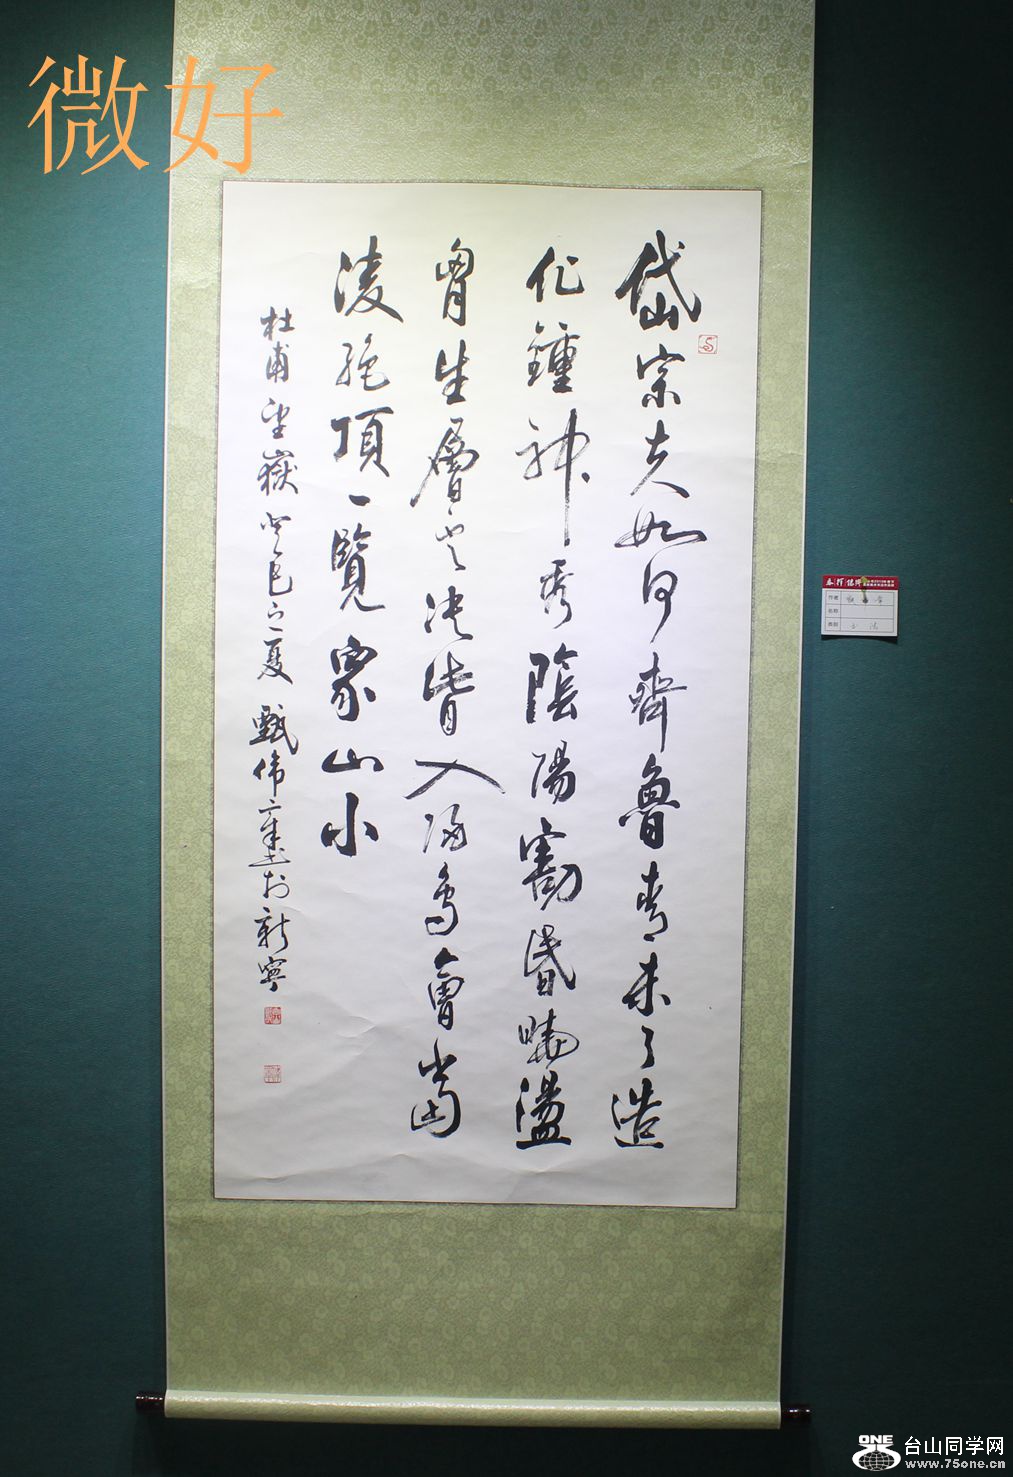 微好
岱宗夫如何齊魯青未了造
化鍾神秀陰陽割昏曉盪
胷生層雲決眥入歸鳥會當
凌絕頂一覽眾山小
杜甫望嶽 癸巳之夏 甄伟章書於新寧
作者
名称
类别 书法
ONE
台山同学网
www.75one.cn